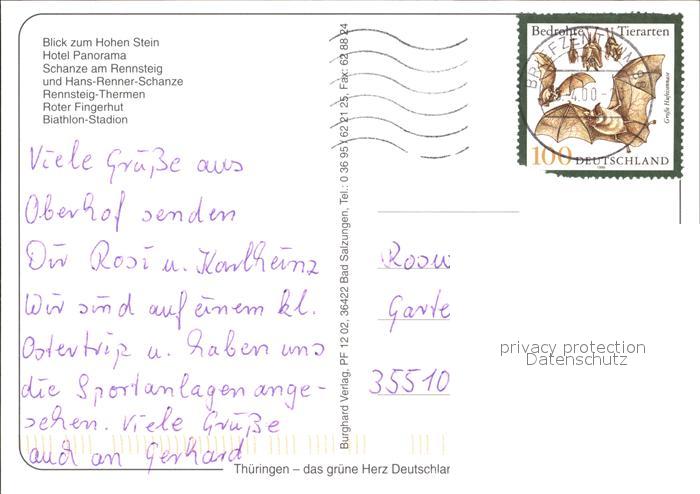 Blick zum Hohen Stein
Hotel Panorama
Schanze am Rennsteig
und Hans-Renner-Schanze
Rennsteig-Thermen
Roter Fingerhut
Biathlon-Stadion
Viele Grüße aus
Oberhof senden
Dir Rosi u. Karlheinz
Wir sind auf einem kl.
Ostertrip u. haben uns
die Sportanlagen ange-
sehen. Viele Grüße
auch an Gerhard
Burghard Verlag, PF 12 02, 36422 Bad Salzungen, Tel.: 0 36 95 / 62 21 25, Fax: 62 88 24
Bedrohte Tierarten
BRIEFZENTRUM
Große Hufeisennase
100 DEUTSCHLAND
Rosw
Garte
35510
privacy protection
Datenschutz
Thüringen – das grüne Herz Deutschlan